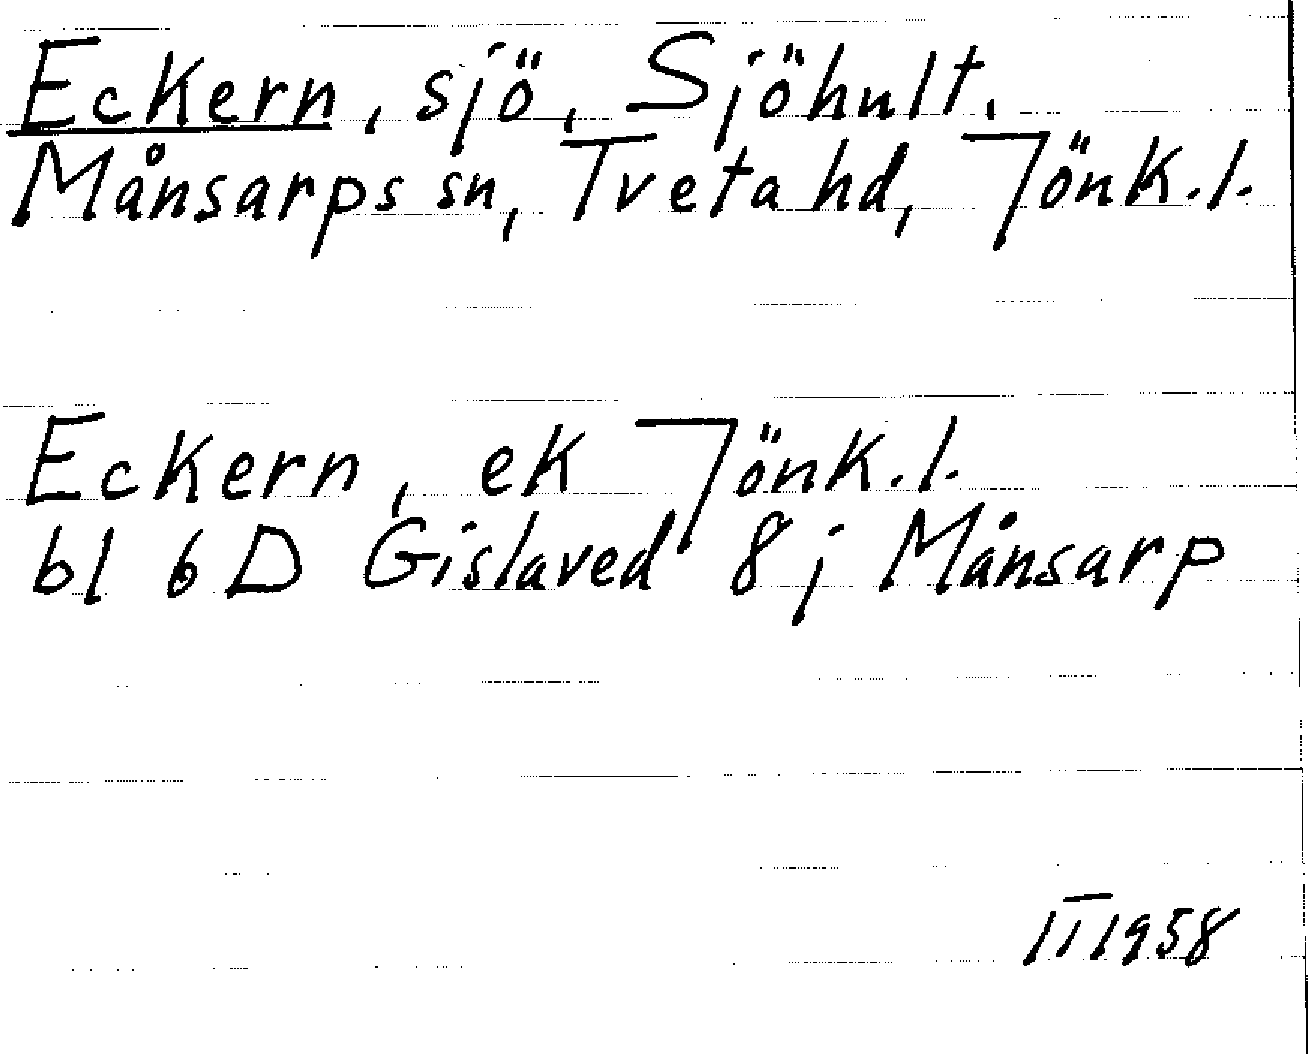 Eckern, sjö, Sjöhult.
Månsarps sn, Tveta hd, Jönk.l.
Eckern, ek Jönk.l.
bl 6 D Gislaved 8 j Månsarp
IT 1958